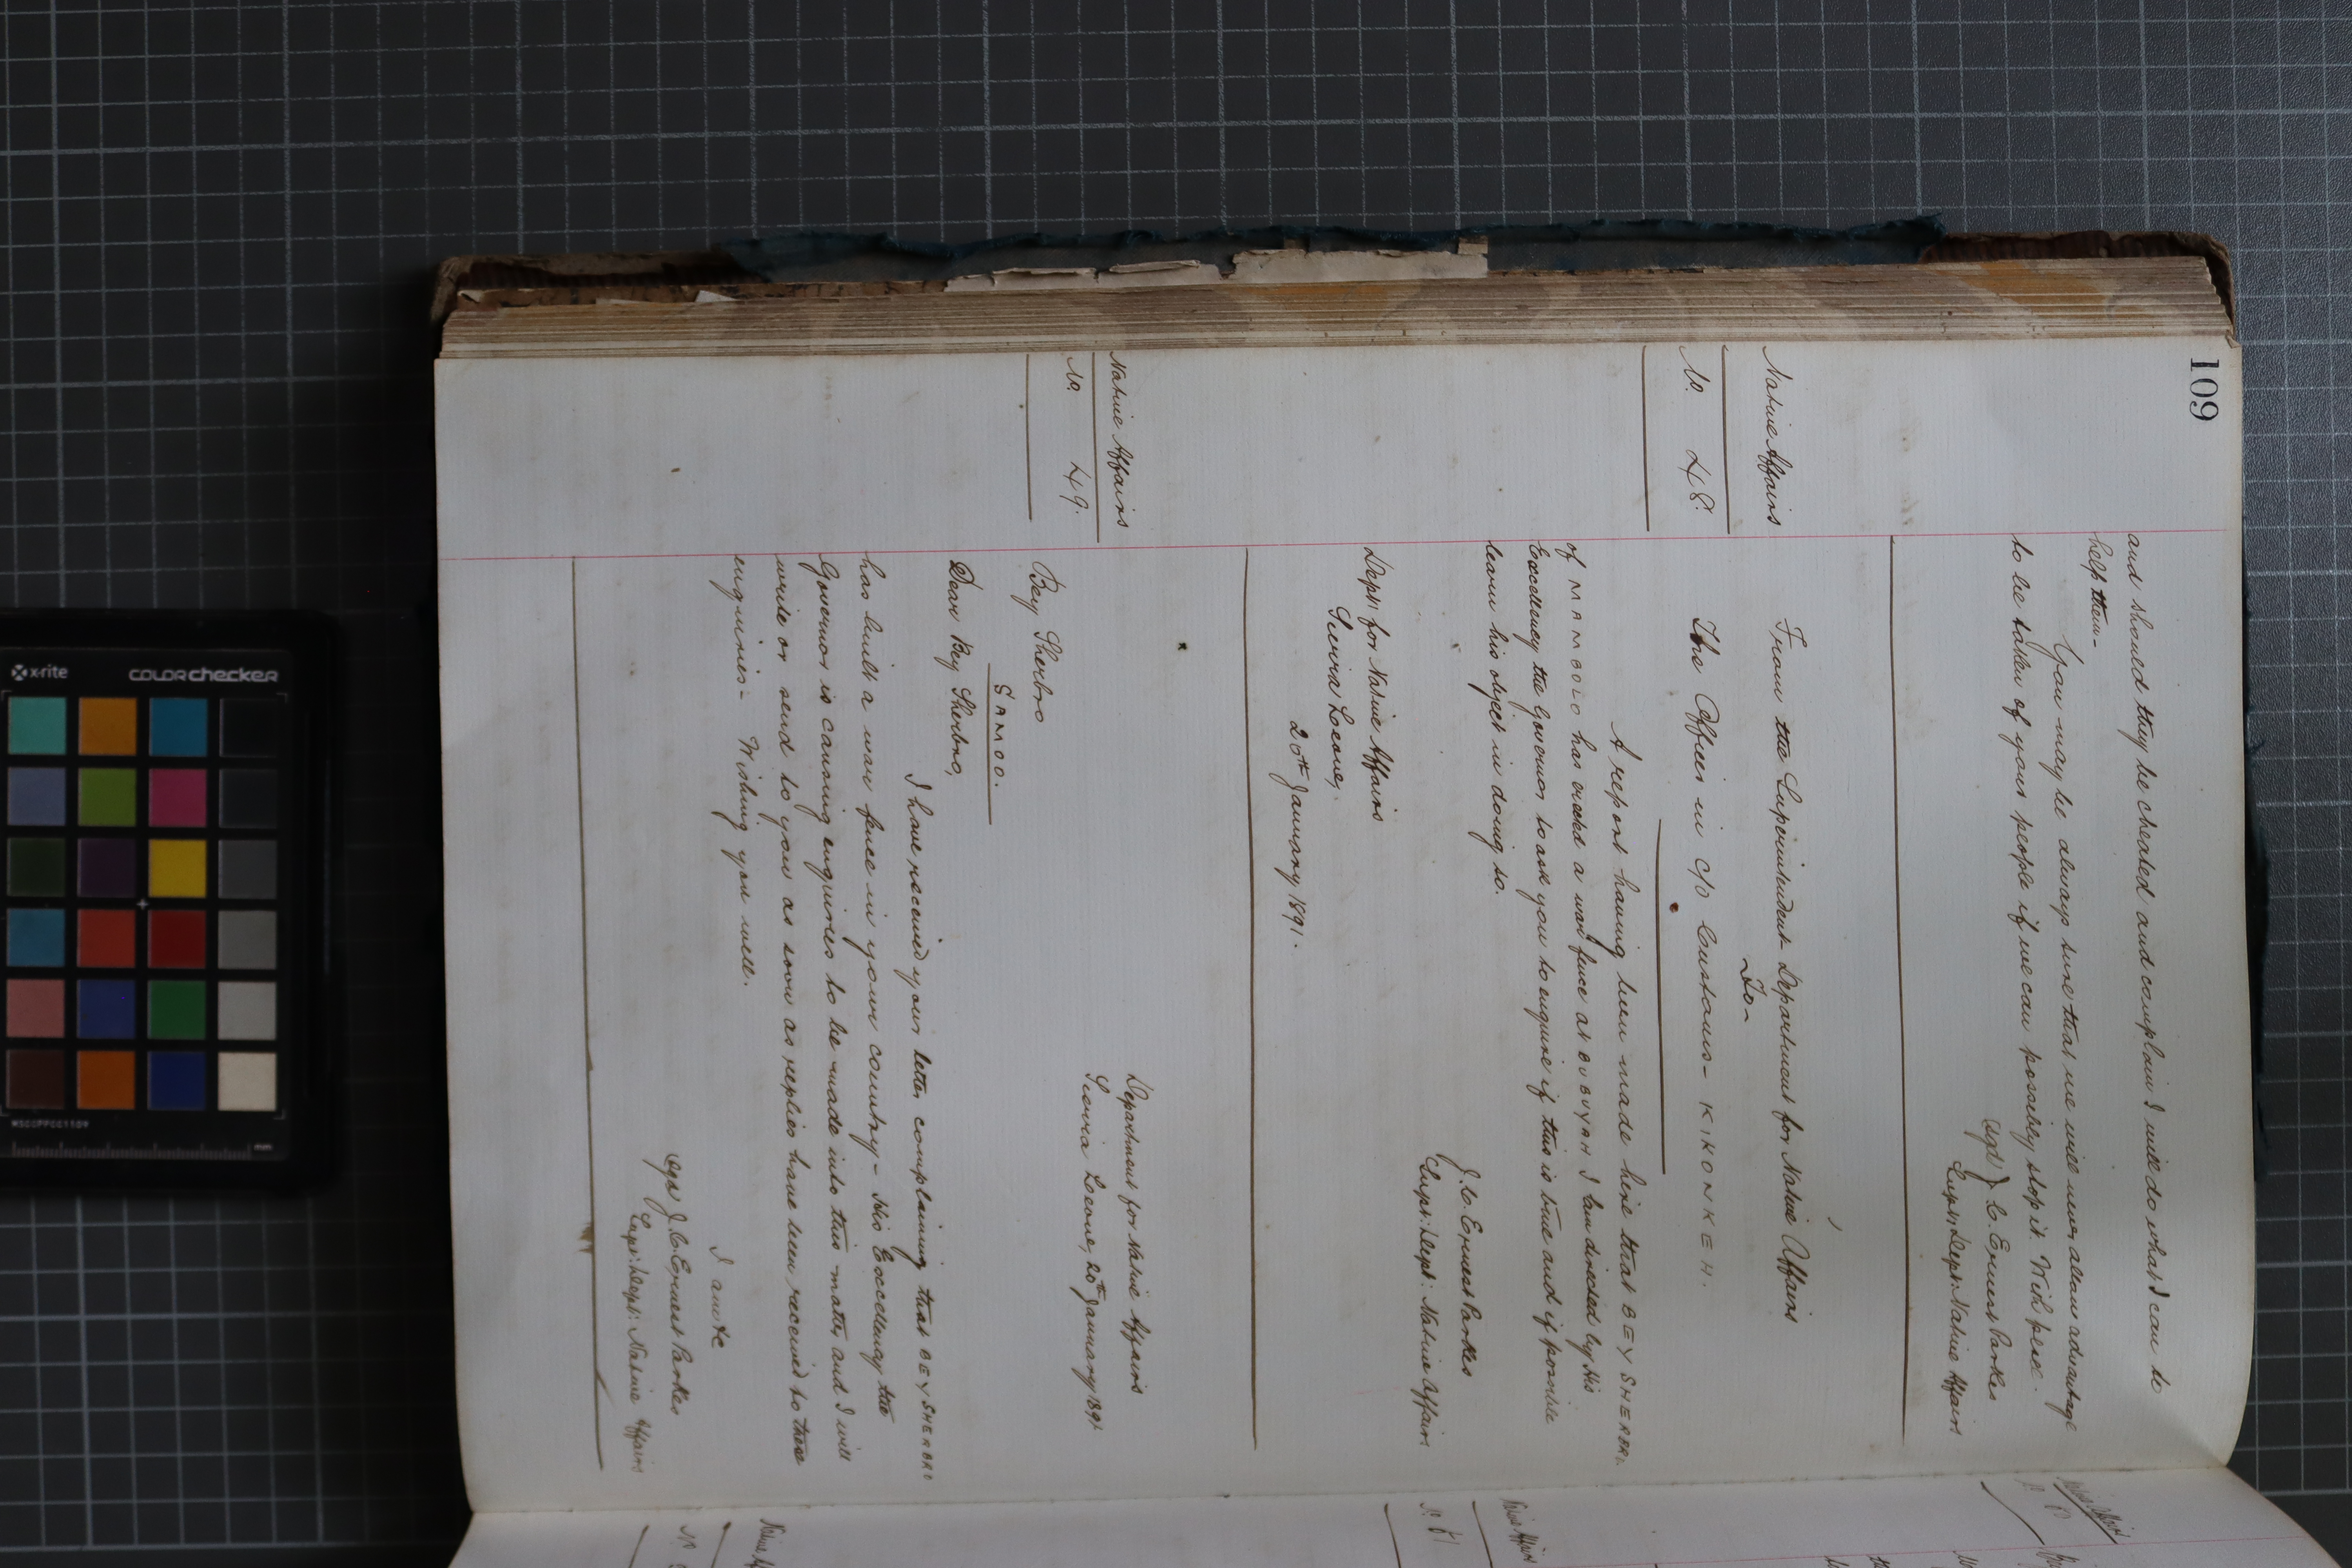 109
and should they be cheated and complain I will do what I can to
help them-
You may be always sure that we will never allow advantage
to be taken of your people if we can possibly stop it. With peace.
(sgd) J. C. Ernest Parkes
Supt: Dept: Native Affairs
Native Affairs
No. 48.
From the Superintendent Department for Native Affairs
To-
The Officer in c/o Customs- KIKONKEH.
A report having been made here that BEY SHERBRO
of MAMBOLO has erected a war fence at BUBUYAH I am directed by His
Excellency the Governor to ask you to enquire if this is true and if possible
learn his object in doing so.
J. C. Ernest Parkes
Supt: Dept: Native Affairs
Dept: for Native Affairs
Sierra Leone,
20th January 1891.
Native Affairs
No. 49.
Department for Native Affairs
Sierra Leone, 20th January 1891
Bey Sherbro
SAMOO.
Dear Bey Sherbro,
I have received your letter complaining that BEY SHERBRO
has built a war fence in your country- His Excellency the
Governor is causing enquiries to be made into this matter and I will
write or send to you as soon as replies have been received to these
enquiries- Wishing you well.
I am &c
(sgd) J. C. Ernest Parkes
Supt: Dept: Native Affairs
Native Affairs
No. 51
x-rite
colorchecker
MSCCPPCC1109
mm